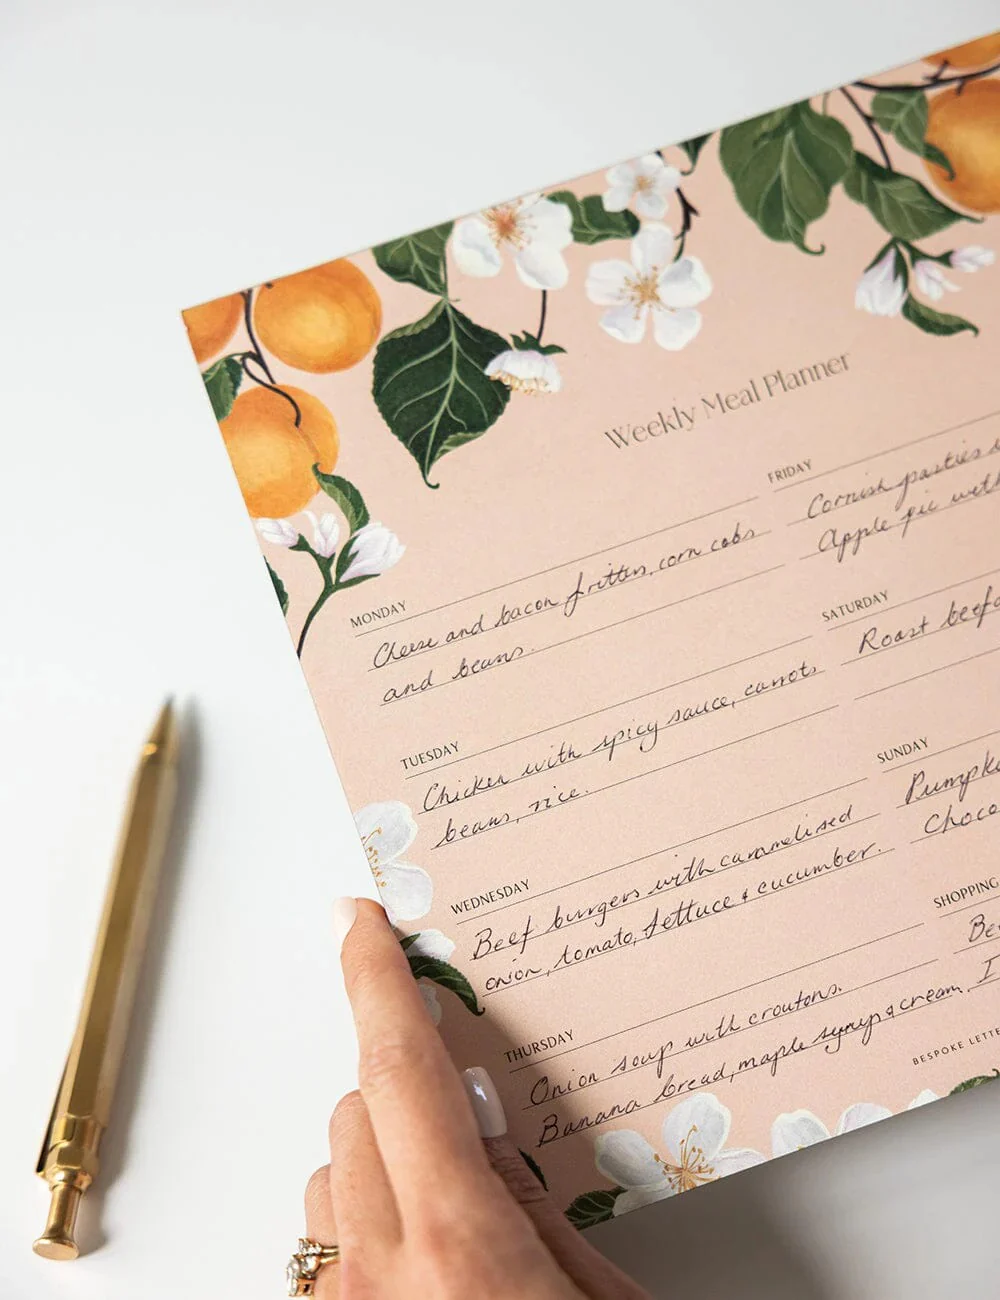 Weekly Meal Planner
MONDAY
Cheese and bacon fritters, corn cobs
and beans.
TUESDAY
Chicken with spicy sauce, carrots
beans, rice.
WEDNESDAY
Beef burgers with caramelised
onion, tomato, lettuce & cucumber.
THURSDAY
Onion soup with croutons.
Banana bread, maple syrup & cream.
FRIDAY
Cornish pasties
Apple pie with
SATURDAY
Roast beef
SUNDAY
Pumpk
Choco
SHOPPING
Be
I
BESPOKE LETTE